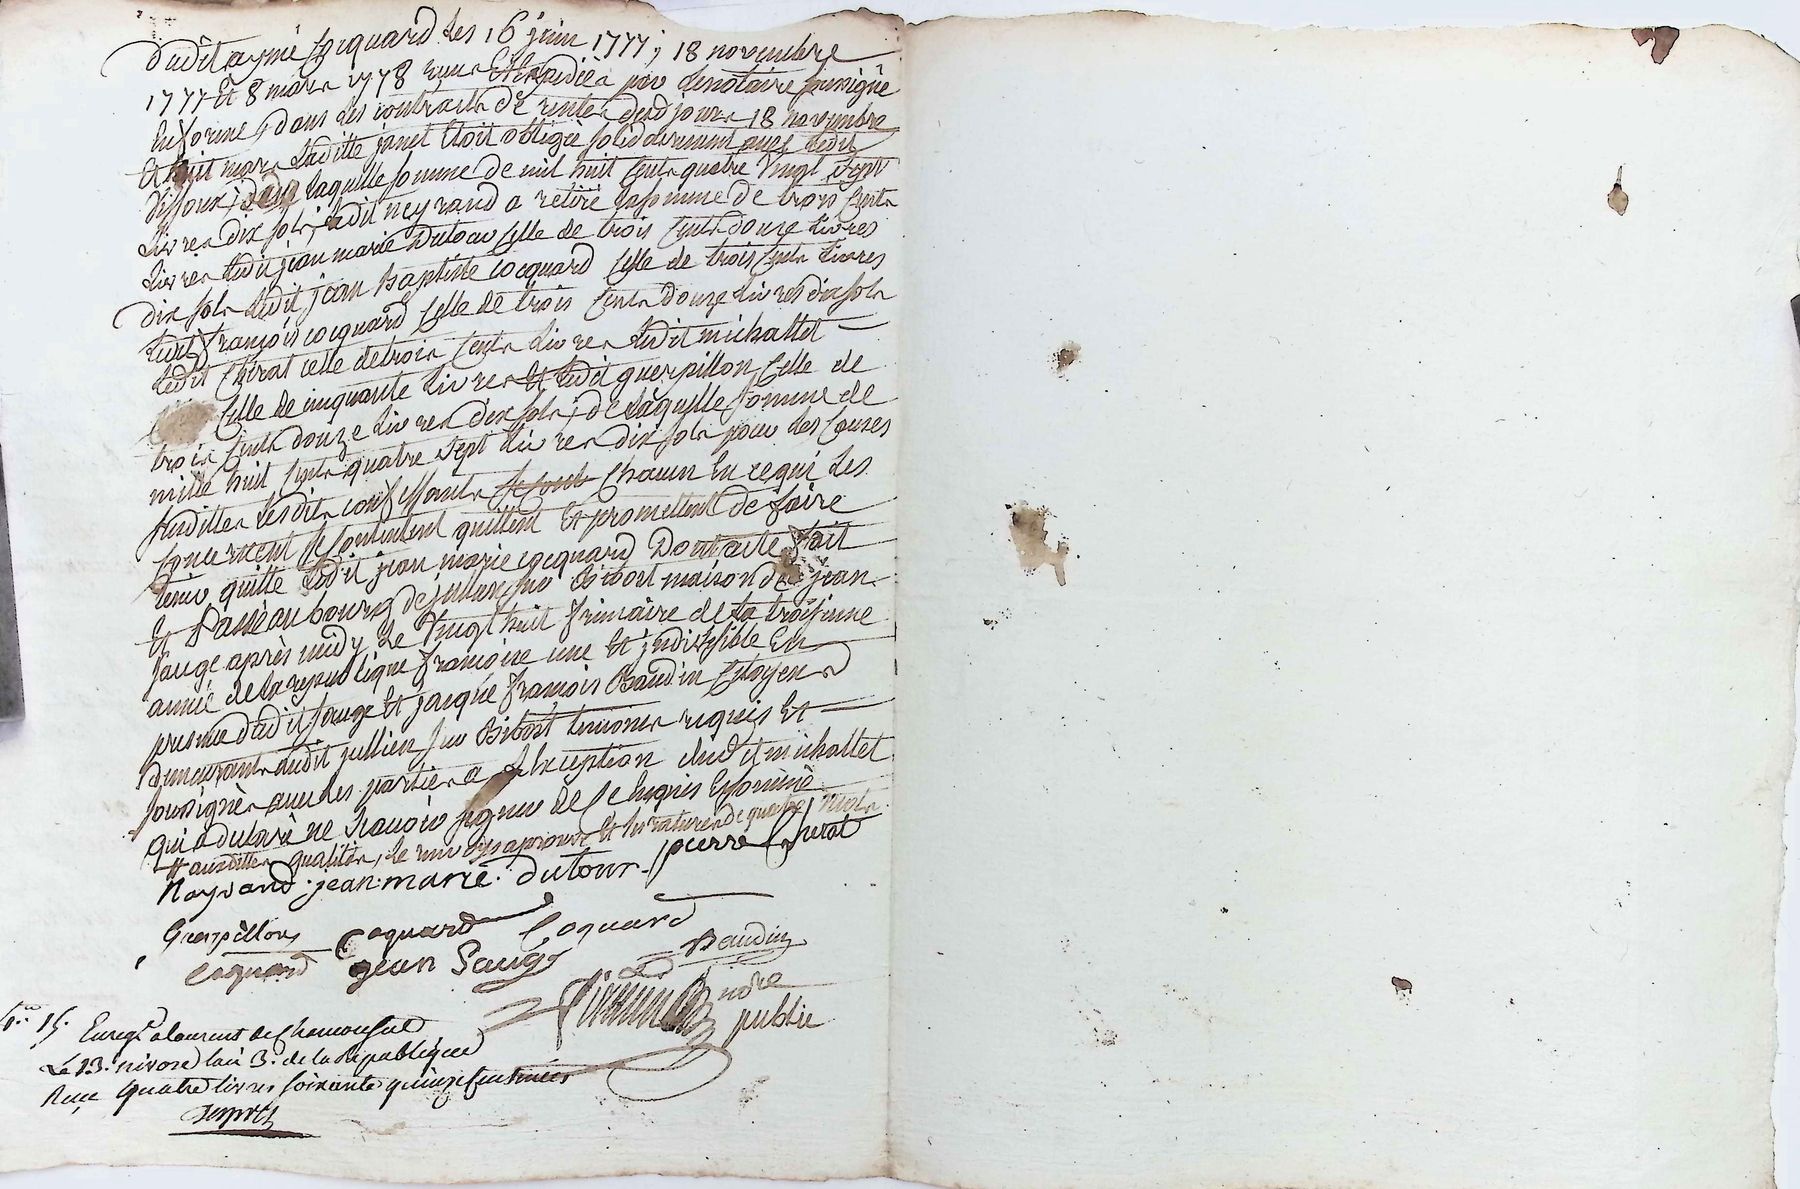 dudit aymé Cocquard les 16 juin 1777, 18 novembre
1777 Et 8 mars 1778 reçus Et Expediés par le notaire soussigné
En forme, dans les contracts de rentes desd jours 18 novembre
Et huit mars Laditte janet Etoit obligée solidairement avec ledit
laquelle somme de mil huit Cents quatre Vingt sept
Livres dix sols, ledit neyrand a retiré la somme de trois Cents
Livres ledit jean marie Dutour Celle de trois Cents douze Livres
dix sols ledit jean Baptiste Cocquard Celle de trois Cents Livres
ledit françois cocquard Celle de trois Cents Douze Livres dix sols
ledit Chirat celle de trois Cents Livres ledit michallet
Celle de cinquante Livres Et ledit guerpillon Celle de
trois Cents douze Livres dix sols, de laquelle somme de
mille huit Cents quatre sept Livres dix sols pour les Causes
susdittes lesdits confessants Chacun En ce qui les
Concernent se Contentent quittent Et promettent de faire
tenir quitte ledit jean marie cocquard Dont acte fait
Et Passé au bourg de jullien sur Bibost maison de jean
Sauge après midy Le Vingt huit frimaire de la troisieme
année de la republique françoise une Et indivisible En
presence dudit sauge Et jacque françois Baudin Citoyens
demeurants audit jullien sur Bibost temoins requis Et
soussignés avec les parties a l'Exception dud it michallet
qui a declaré ne sçavoir signer de Ce Enquis Et sommé
# ausdittes qualités, le renvoy approuvé Et les ratures de quatre mots
Nayrand jean marie dutour pierre Chirat
Guerpillon Coquard Coquard
coquard jean Sauge Baudin
notre
public
15. Enregt a laurent de Chamousset
Le 13. nivose l'an 3. de la Republique
Reçu quatre livres soixante quinze centimes